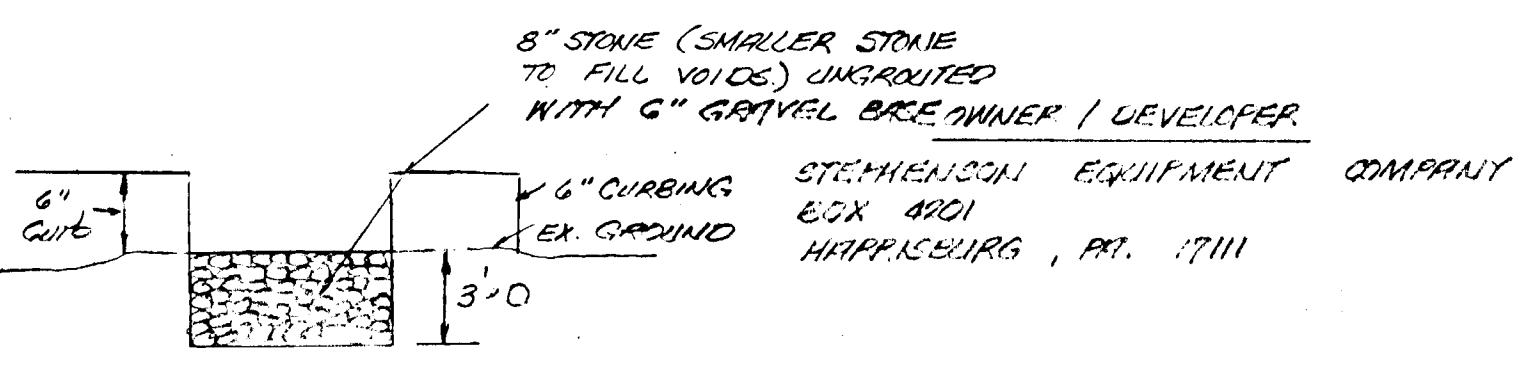 8" STONE (SMALLER STONE
TO FILL VOIDS.) UNGROUTED
WITH 6" GRAVEL BASE
OWNER / DEVELOPER
STEPHENSON EQUIPMENT COMPANY
BOX 4201
HARRISBURG, PA. 17111
6"
Curb
6" CURBING
EX. GROUND
3'-0